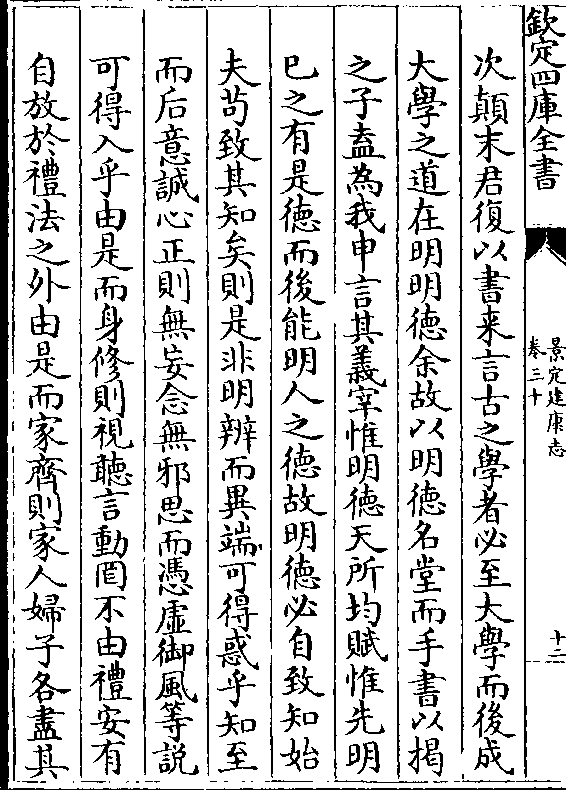 欽定四庫全書
景定建康志
卷三十
十二
次顛末君復以書来言古之學者必至大學而後成
大學之道在明明德余故以明德名堂而手書以揭
之子盍為我申言其義宰惟明德天所均賦惟先明
已之有是德而後能明人之德故明德必自致知始
夫苟致其知矣則是非明辨而異端可得惑乎知至
而后意誠心正則無妄念無邪思而憑虛御風等説
可得入乎由是而身修則視聽言動罔不由禮安有
自放於禮法之外由是而家齊則家人婦子各盡其